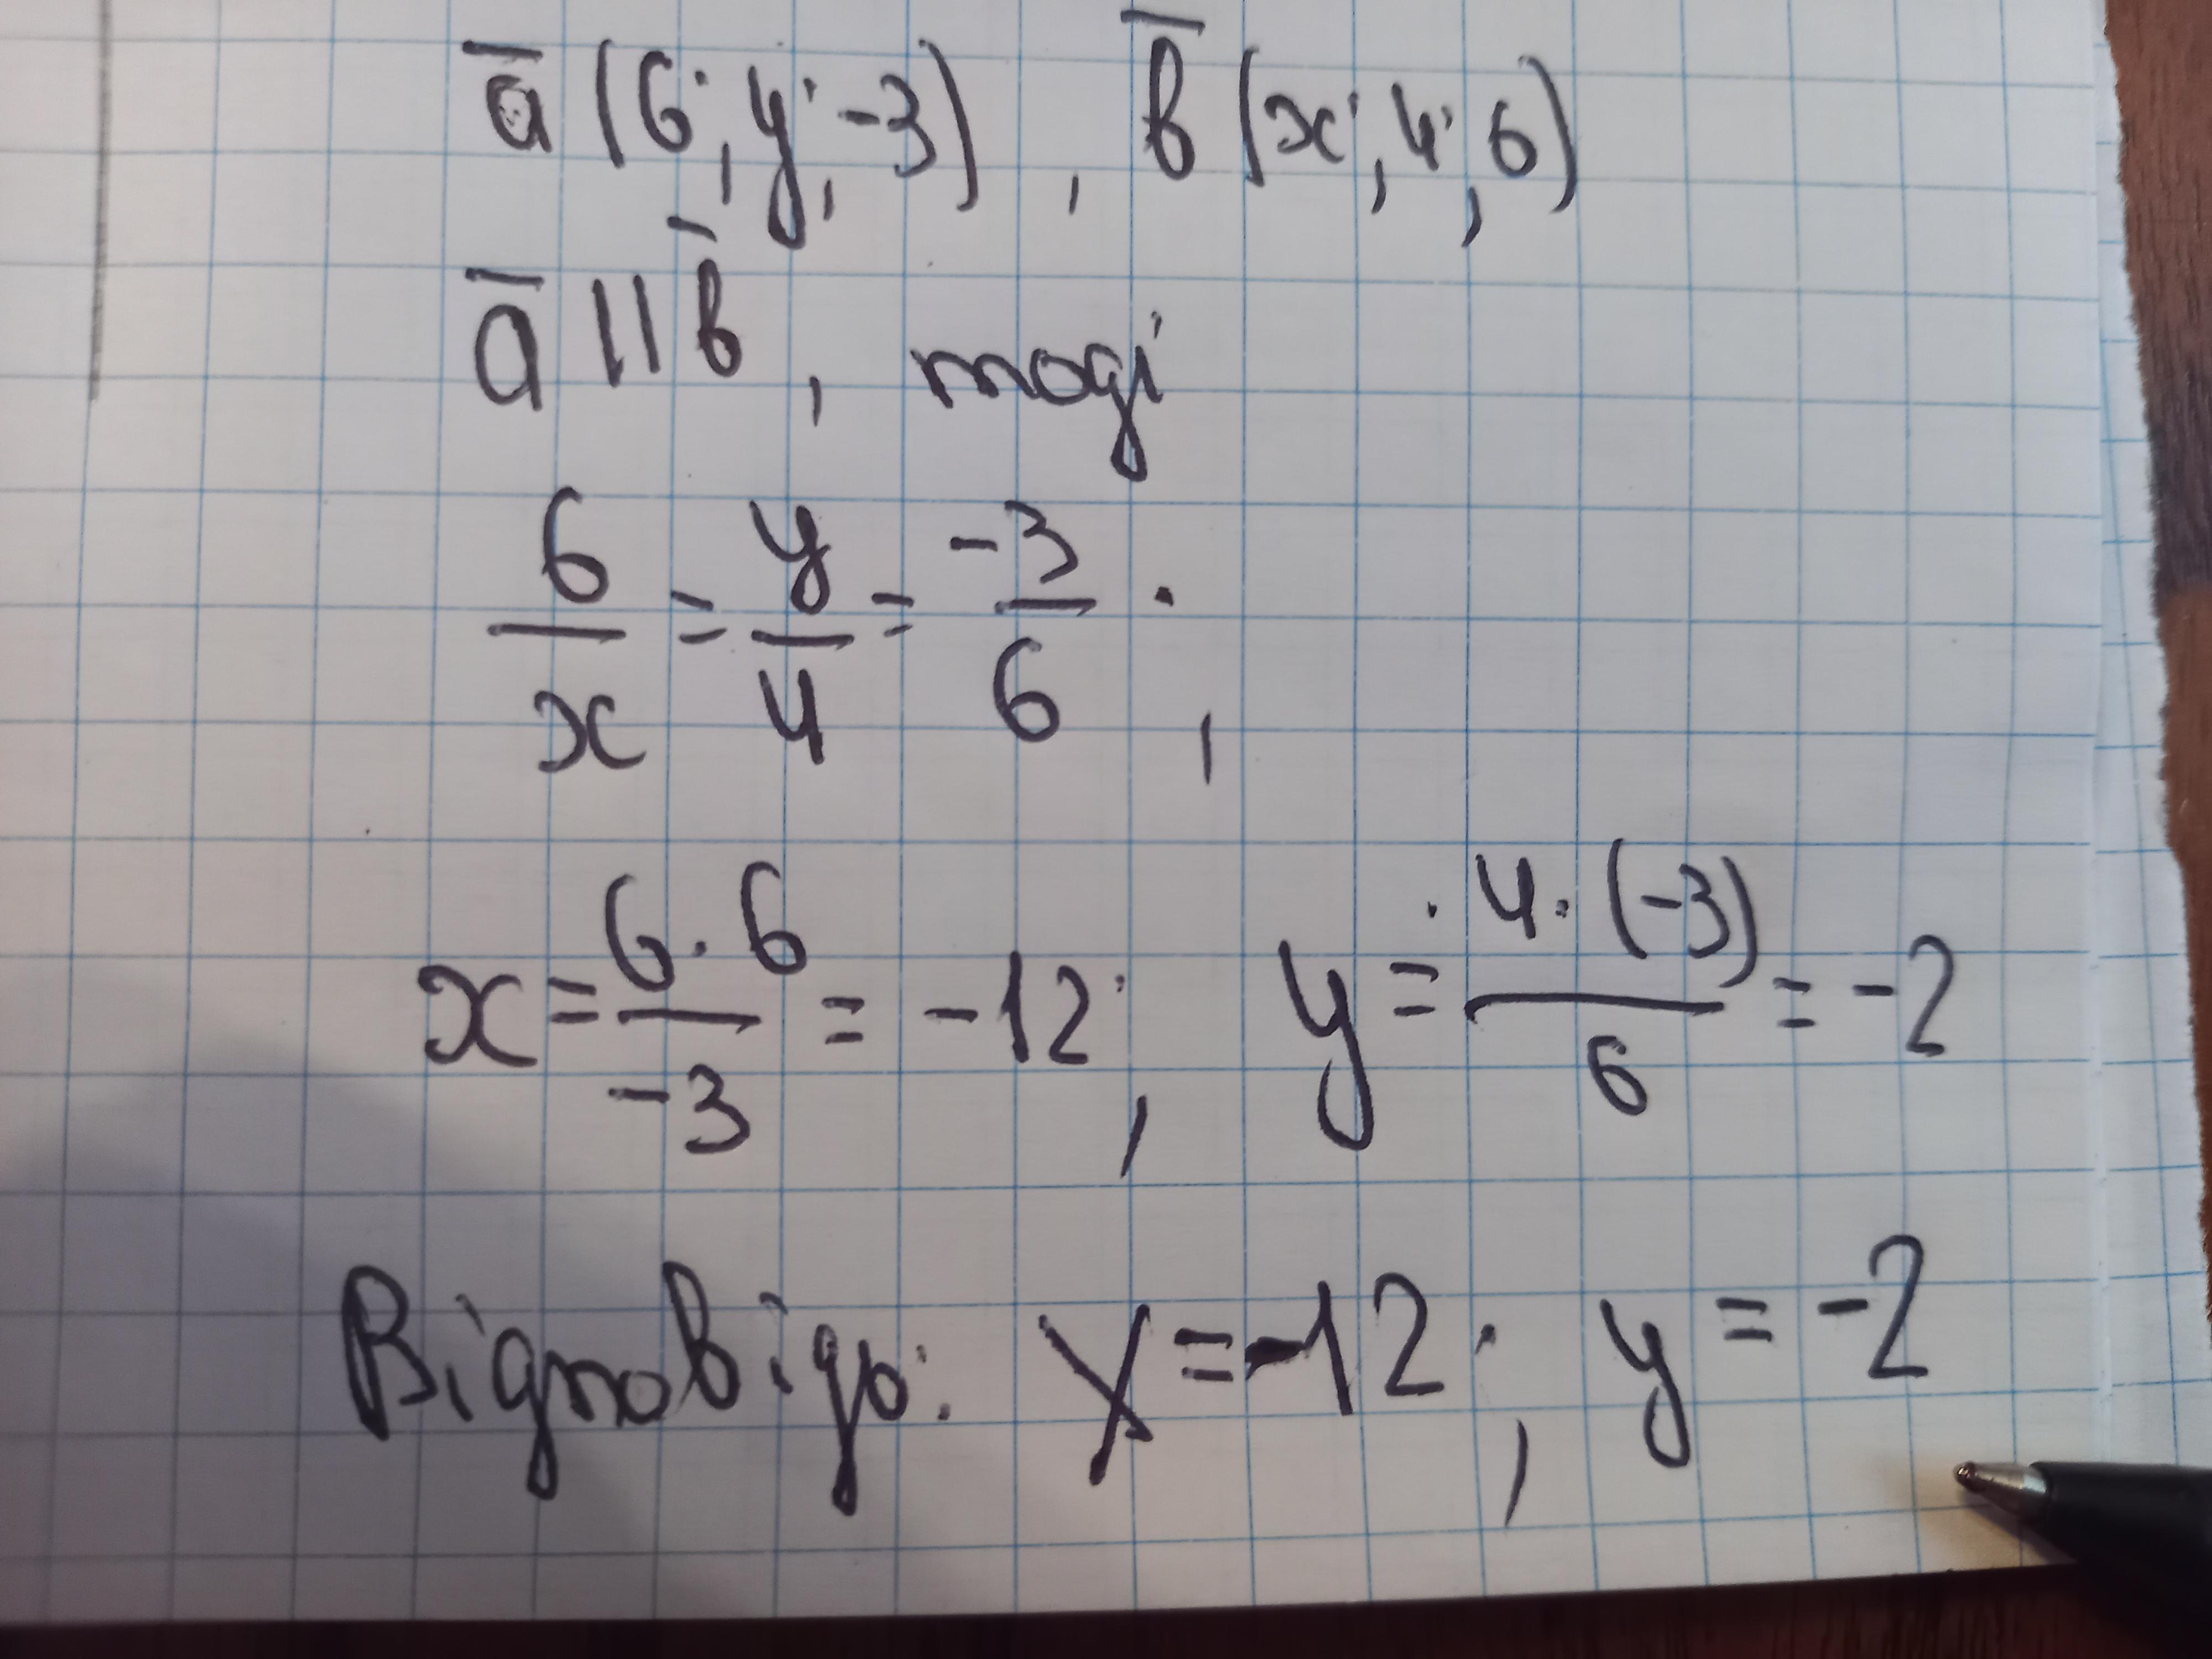 a̅ (6; y; -3), b̅ (x; 4; 6)
a̅ || b̅, тоді
6/x = y/4 = -3/6;
x = 6·6/-3 = -12; y = 4·(-3)/6 = -2
Відповідь: x = -12; y = -2